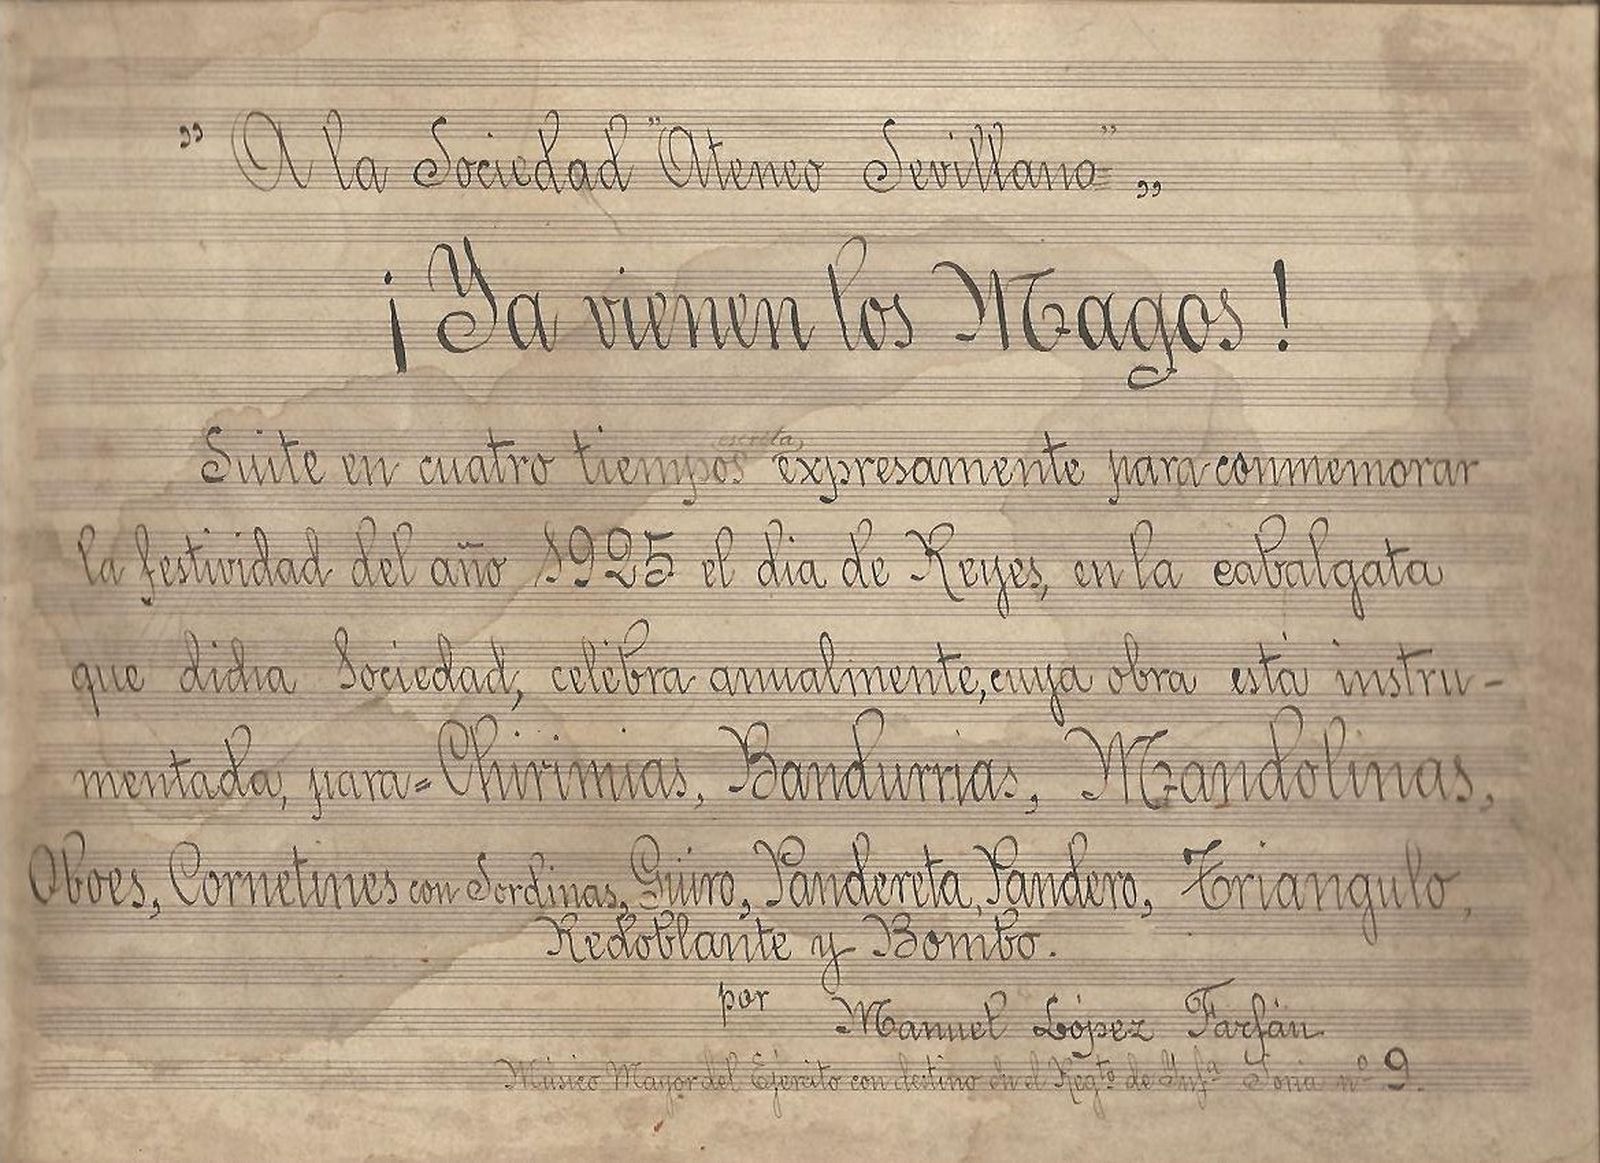 ” A la Sociedad ”Ateneo Sevillano” „
¡Ya vienen los Magos!
Suite en cuatro tiempos escrita, expresamente para conmemorar
la festividad del año 1925 el dia de Reyes, en la cabalgata
que dicha Sociedad, celébra anualmente, cuya obra está instru-
mentada, para= Chirimias, Bandurrias, Mandolinas,
Oboes, Cornetines con Sordinas, Güiro, Pandereta, Pandero, Triangulo,
Redoblante y Bombo.
por
Manuel López Farfán
Músico Mayor del Ejército con destino en el Regtº de Infª Soria nº 9.